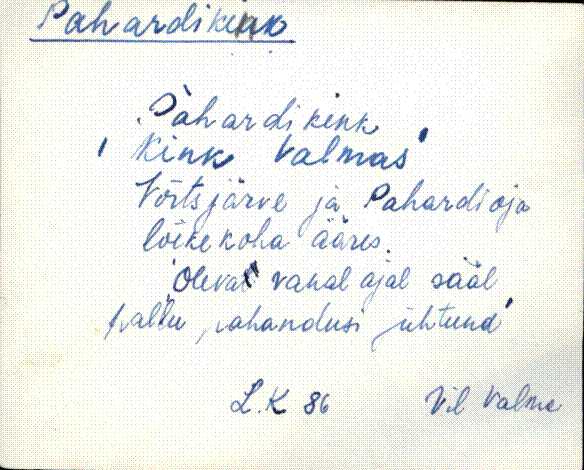 Pahardikink
Pahardi kink
'Kink Valmas'
Võrtsjärve ja Pahardi oja
lõikekoha ääres.
"Olevat" vanal ajal sääl
pallu pahandusi ühtund'
L.K 86 Vil Valma